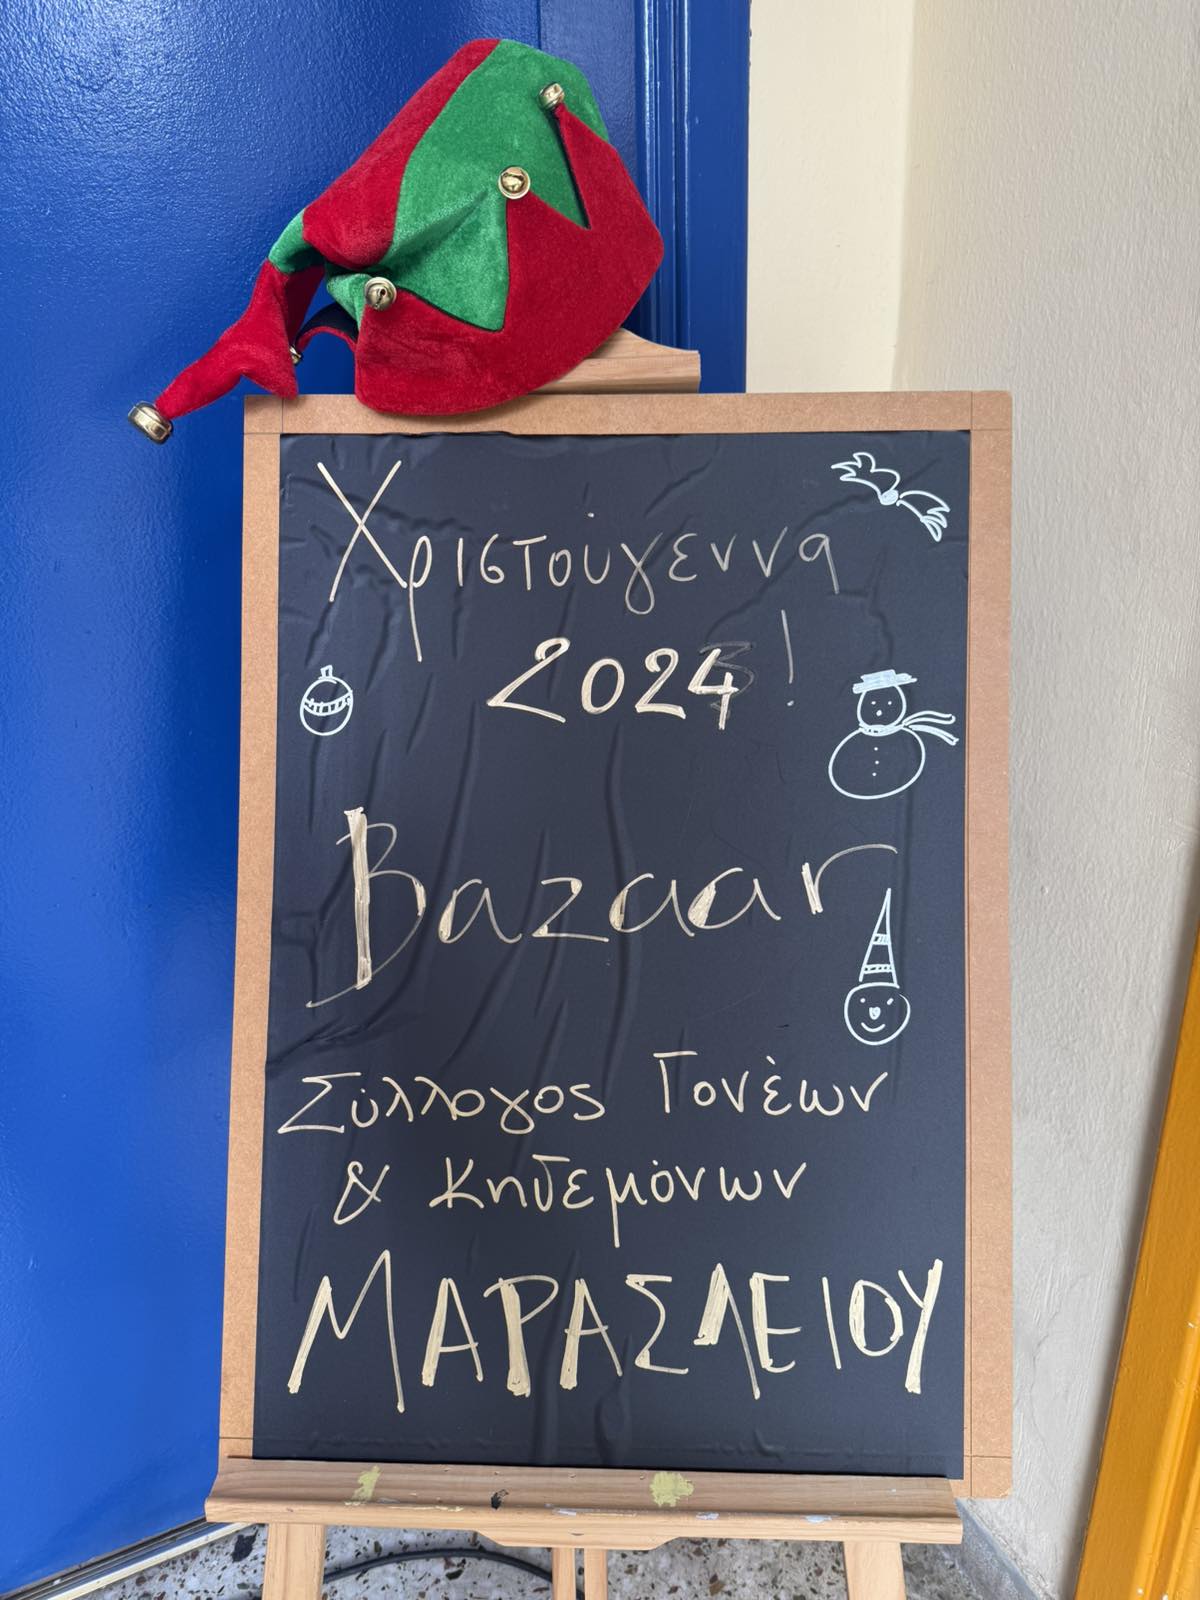 Χριστούγεννα
2024!
Bazaar
Σύλλογος Γονέων
& Κηδεμόνων
ΜΑΡΑΣΛΕΙΟΥ